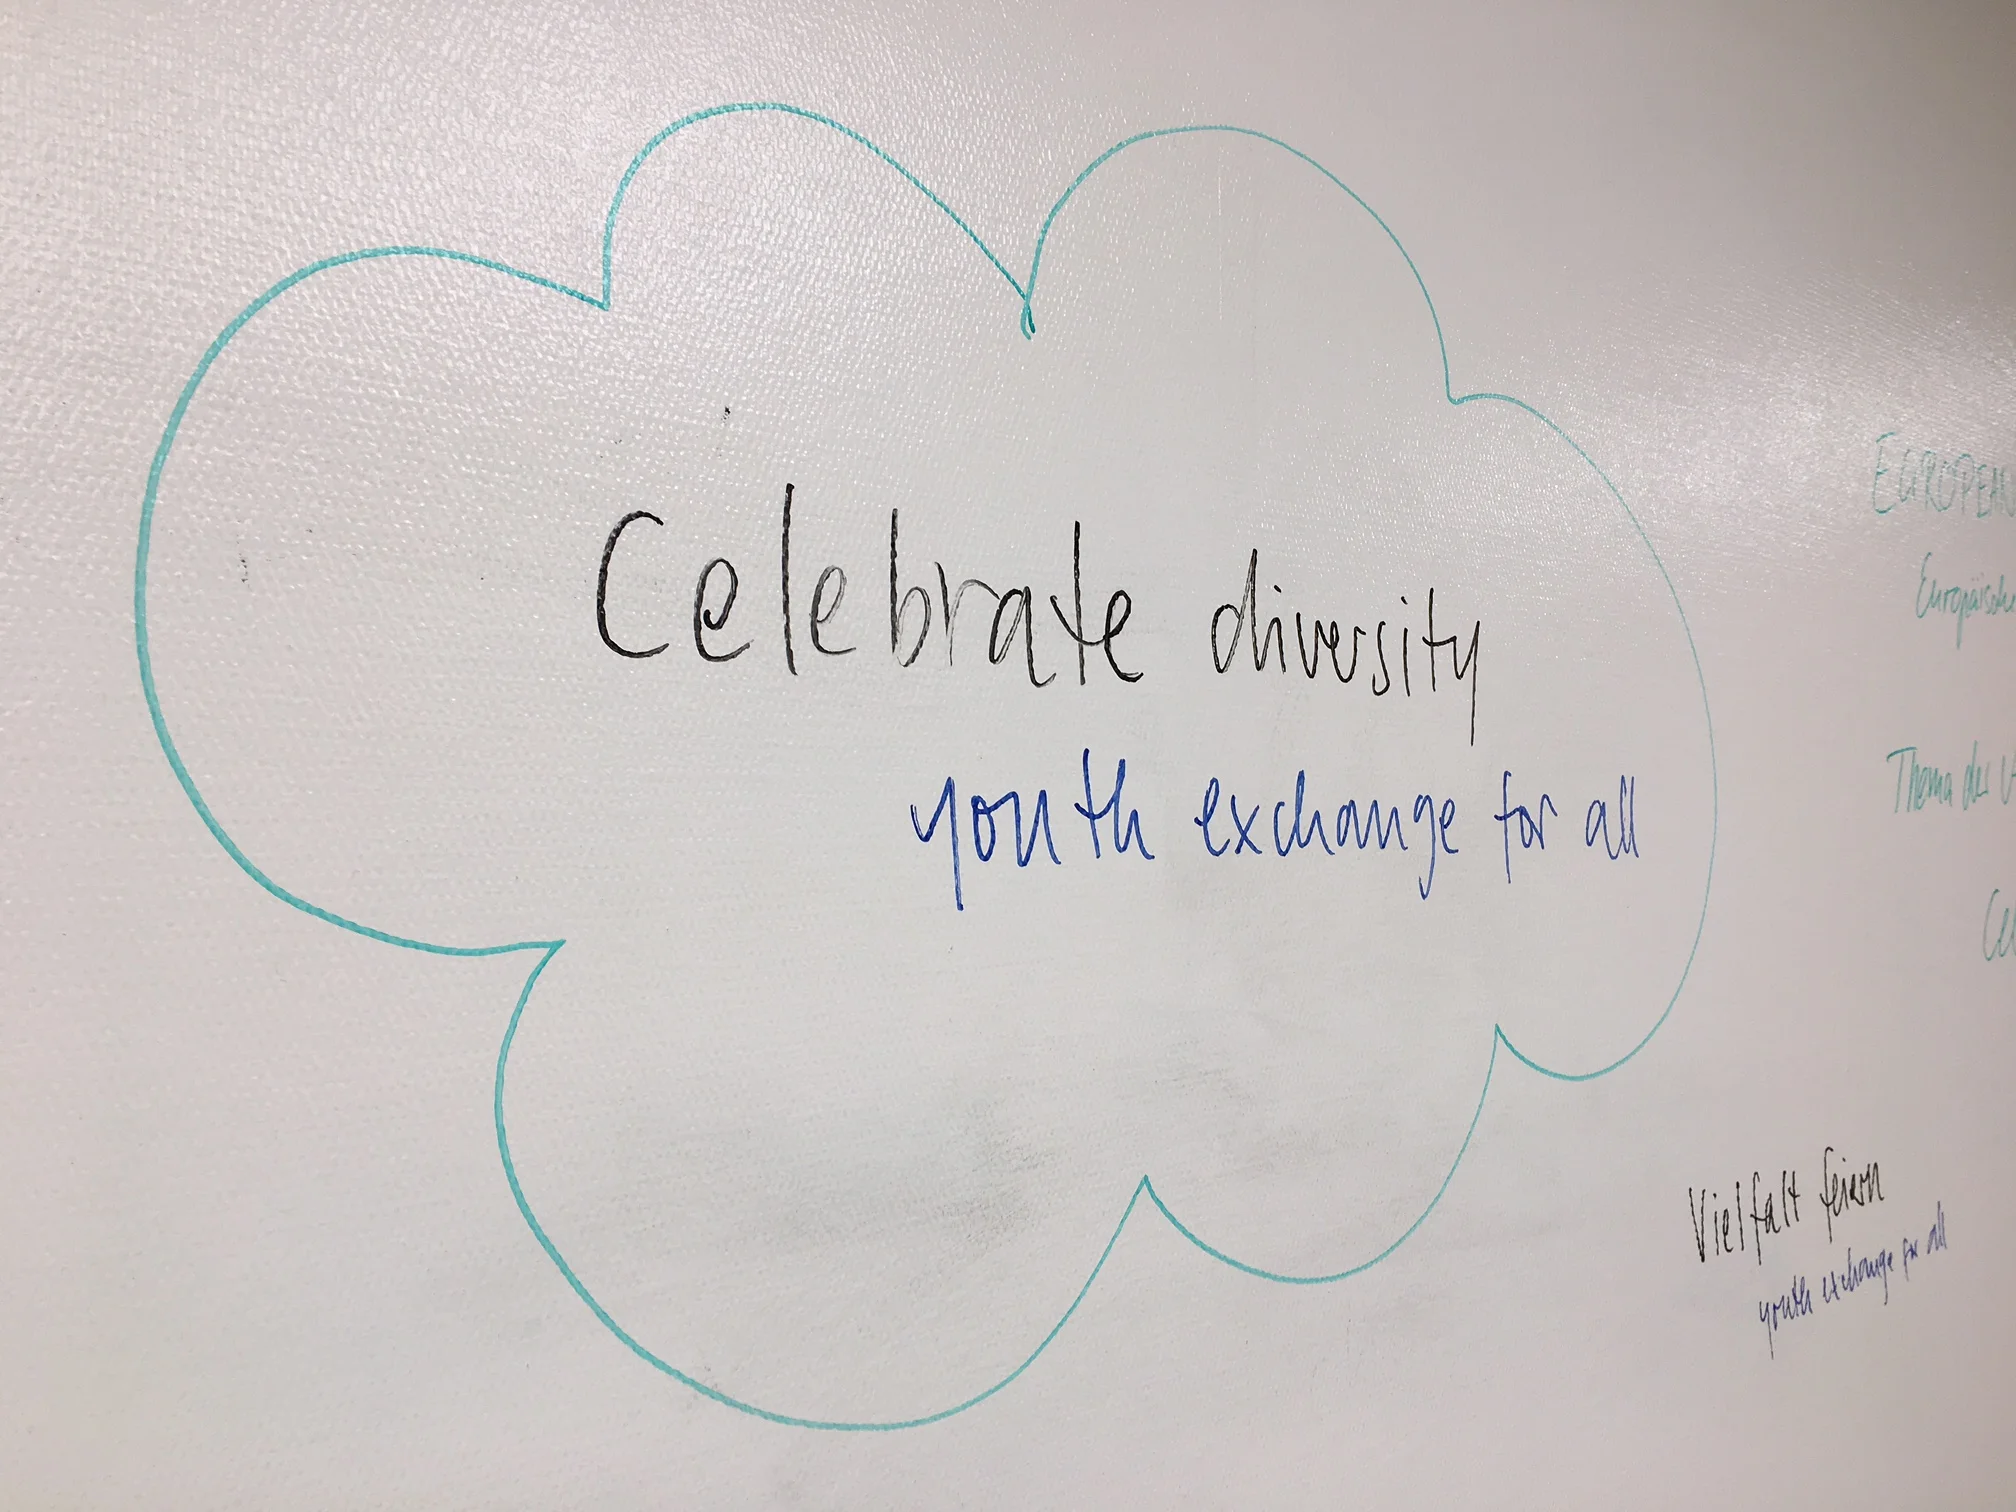 Celebrate diversity
youth exchange for all
EUROPEAN
Thema der
Vielfalt feiern
youth exchange for all